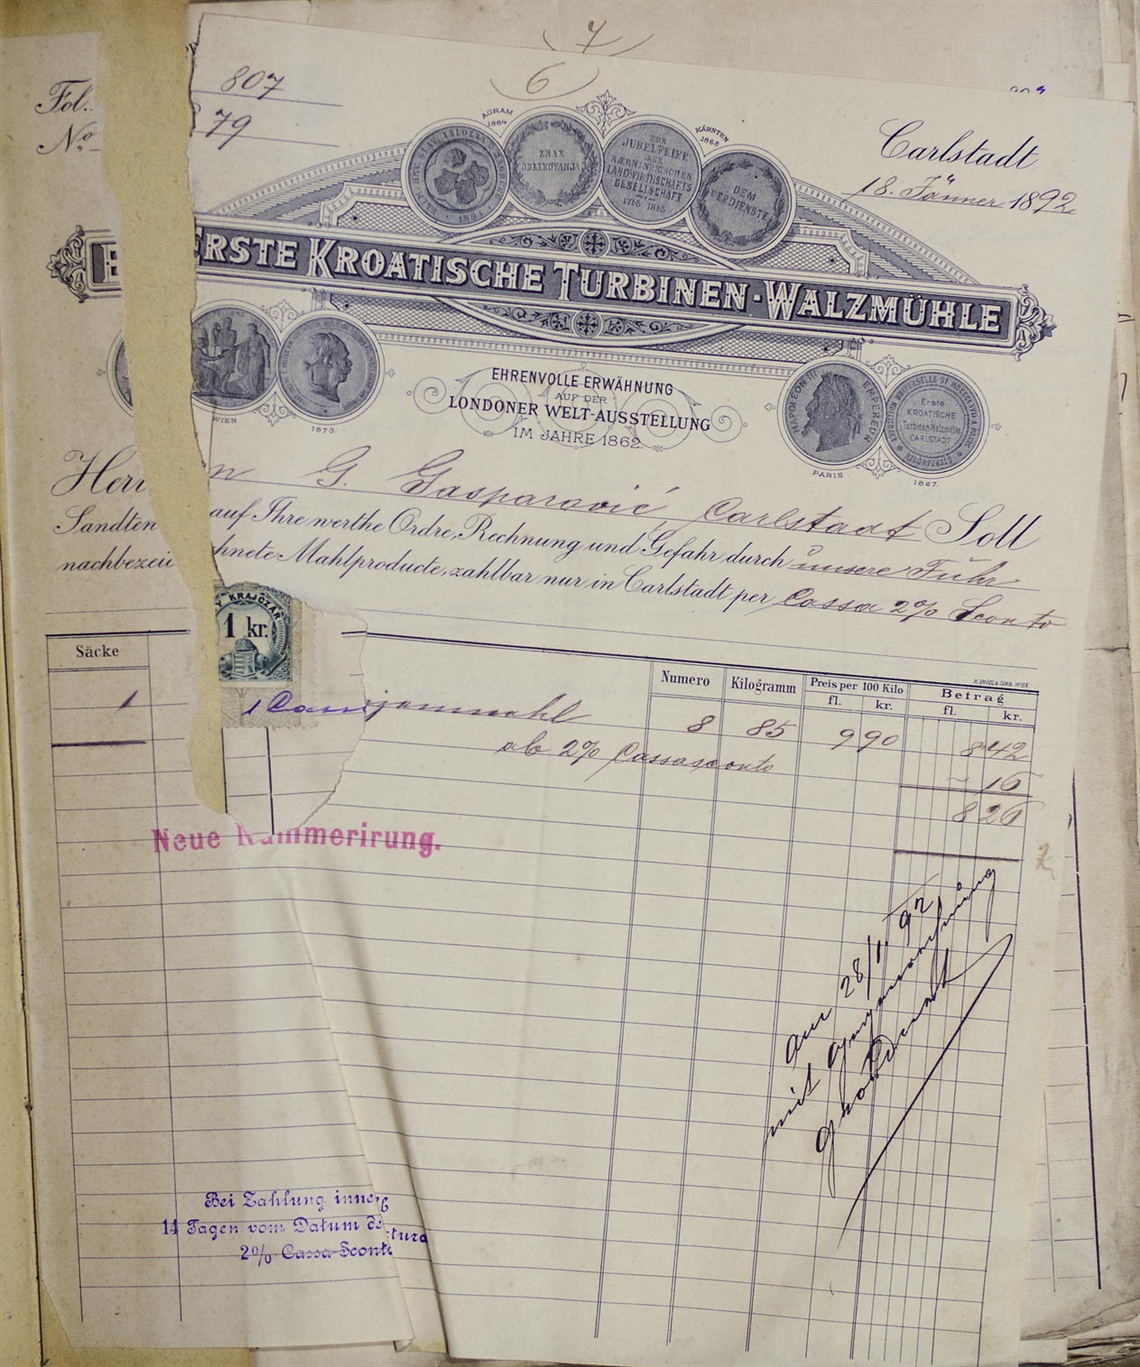 7
6
Fol. 807
No 79
AGRAM
1864
KÄRNTEN
1865
ZNAK
ODLIKOVANJA
ZUR
JUBELFEIER
DER
KÆRNTNERISCHEN
LANDWIRTHSCHAFTS
GESELLSCHAFT
1765 1865
DEM
VERDIENSTE
Carlstadt
18. Jänner 1892
ERSTE KROATISCHE TURBINEN-WALZMÜHLE
WIEN
1873.
EHRENVOLLE ERWÄHNUNG
AUF DER
LONDONER WELT-AUSSTELLUNG
IM JAHRE 1862.
NAPOLEON III EMPEREUR
Erste
KROATISCHE
Turbinen-Walzmühle
CARLSTADT
PARIS
1867.
Herrn G. Gasparović Carlstadt Soll
Sandten auf Ihre werthe Ordre, Rechnung und Gefahr durch unsere Fuhr
nachbezeichnete Mahlproducte, zahlbar nur in Carlstadt per Cassa 2% Sconto
KRAJCZÁR
1 kr.
H. ENGEL & SOHN, WIEN
Säcke Numero Kilogramm Preis per 100 Kilo Betrag
fl. kr. fl. kr.
1 8 85 9 90 8 42
ab 2% Cassasconto – 16
8 26
Neue Nummerirung.
am 28/1 92
mit
Bei Zahlung inner
14 Tagen vom Datum de tura
2% Cassa-Sconto